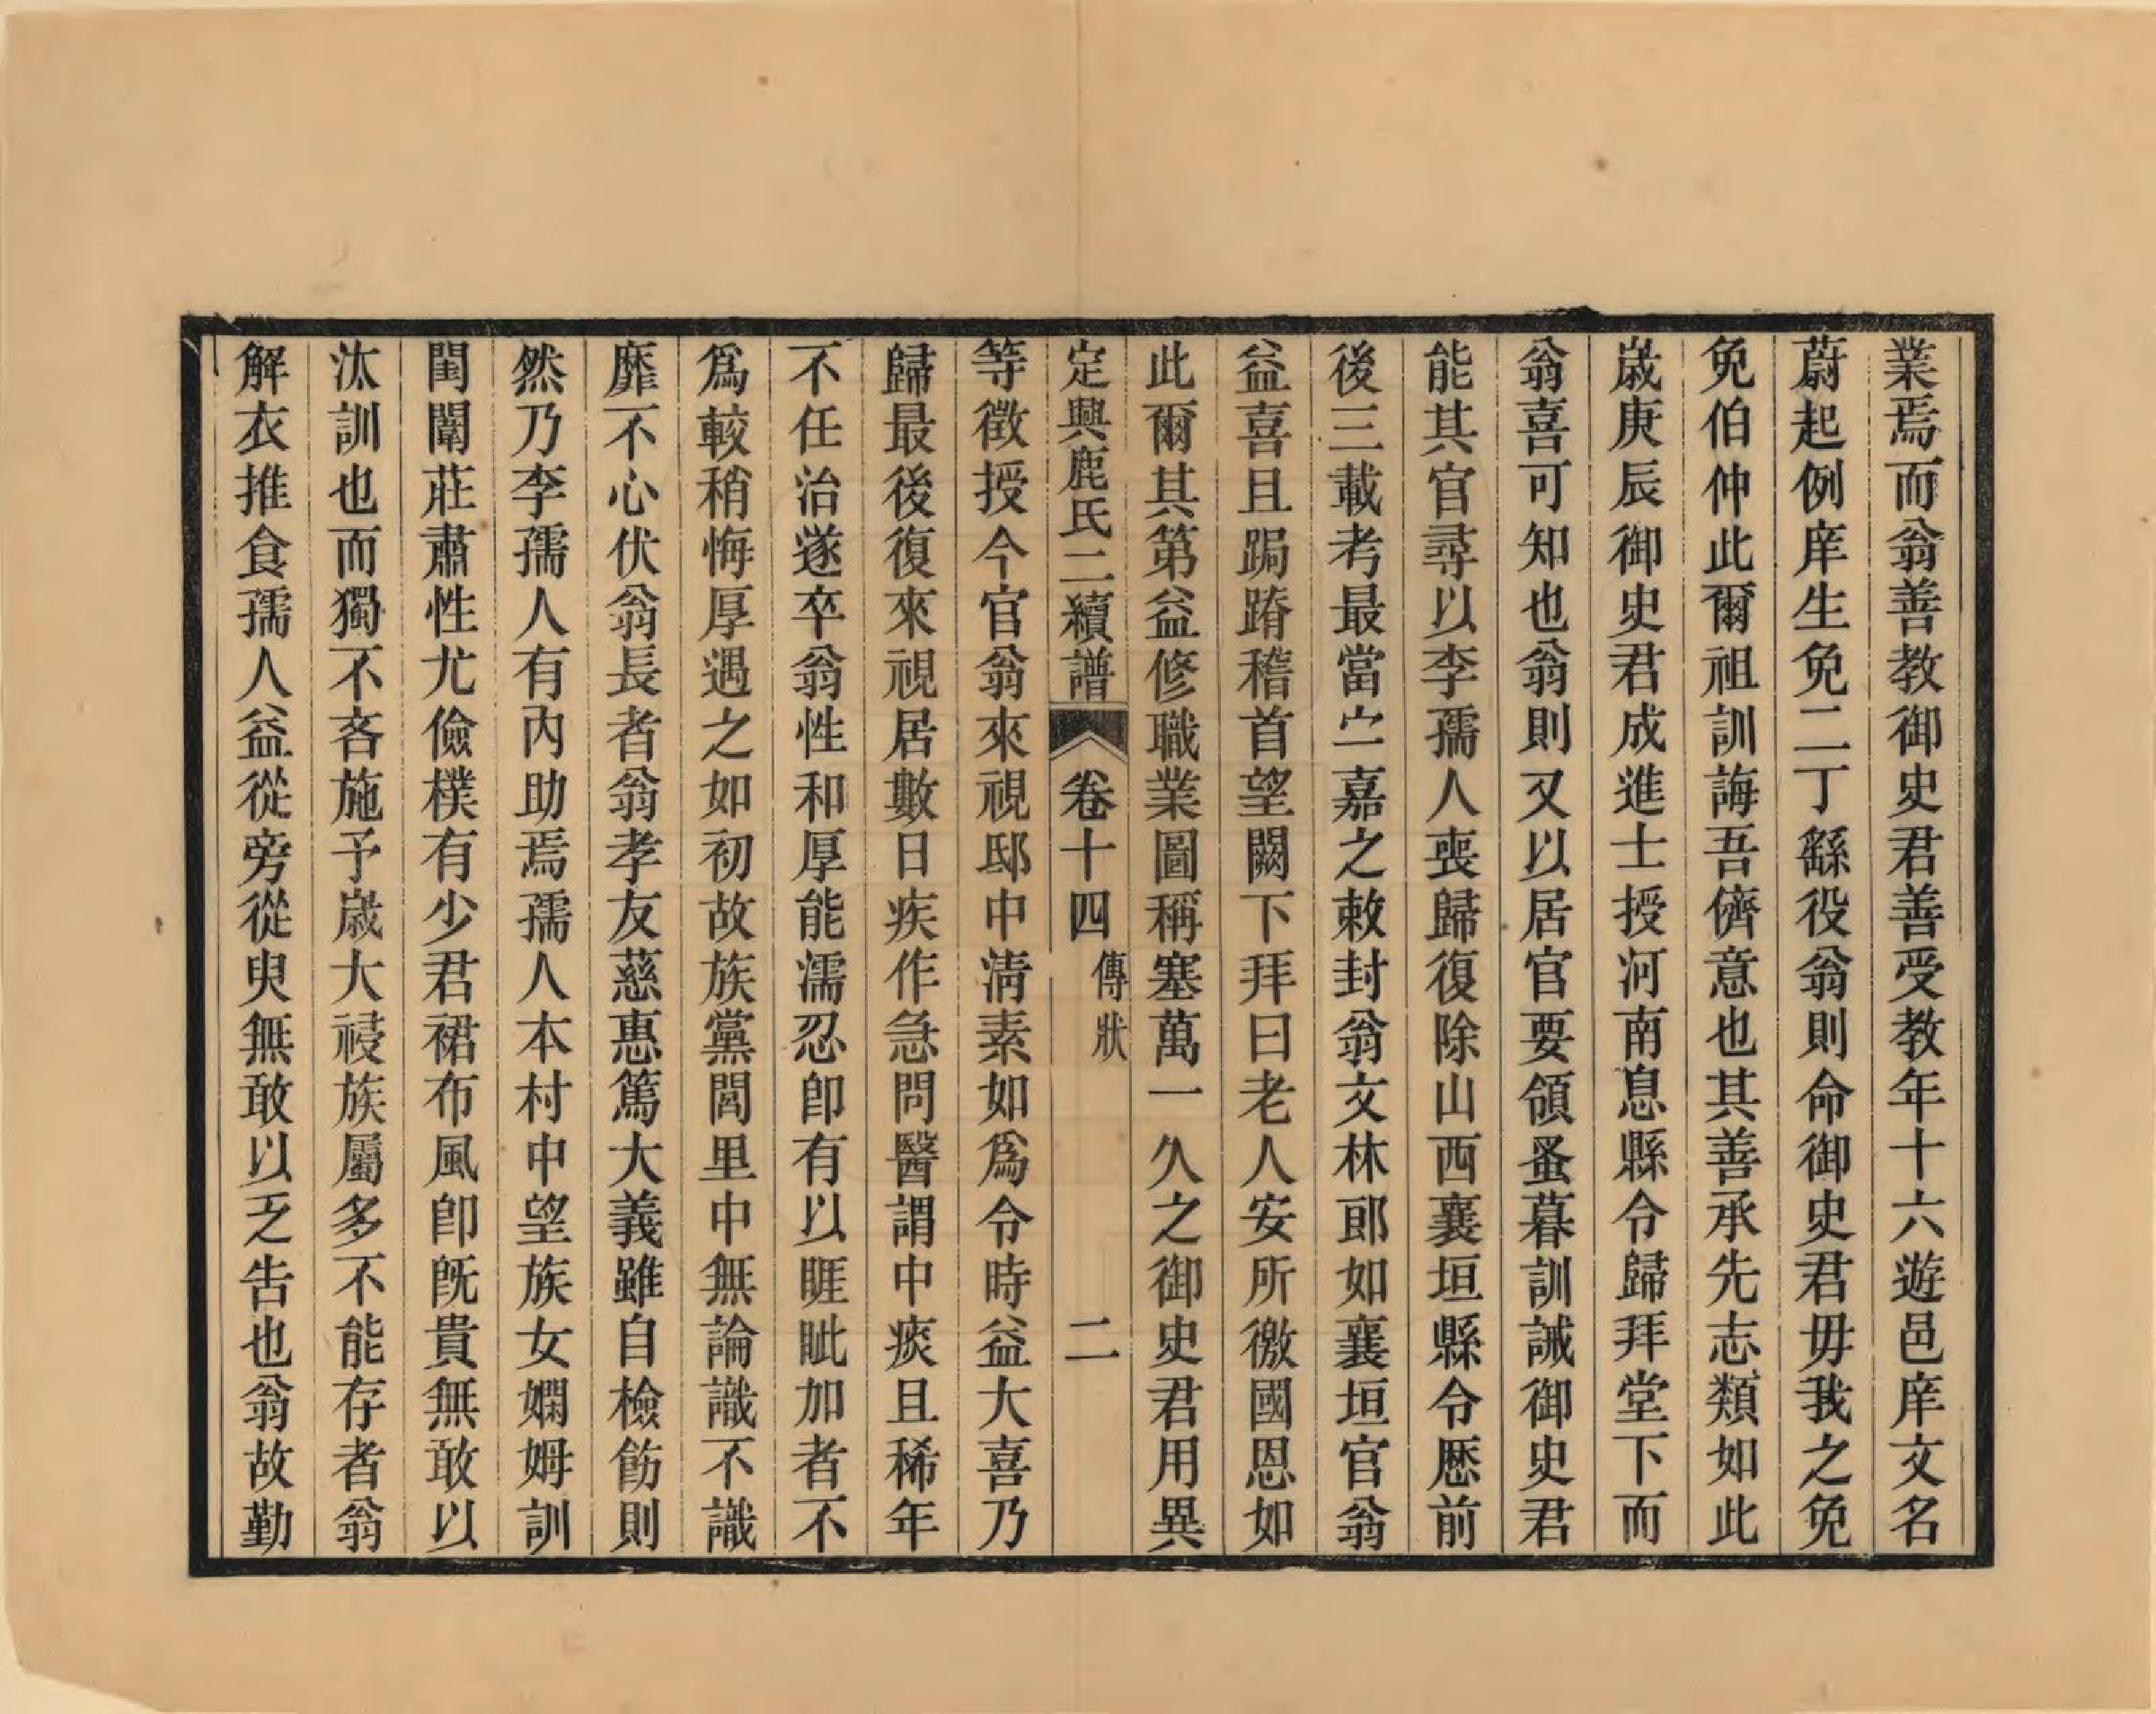 業焉而翁善教御史君善受教年十六遊邑庠文名
蔚起例庠生免二丁繇役翁則命御史君毋我之免
免伯仲此爾祖訓誨吾儕意也其善承先志類如此
歲庚辰御史君成進士授河南息縣令歸拜堂下而
翁喜可知也翁則又以居官要領蚤暮訓誡御史君
能其官尋以李孺人喪歸復除山西襄垣縣令歷前
後三載考最當宁嘉之敕封翁文林郎如襄垣官翁
益喜且跼蹐稽首望闕下拜曰老人安所徼國恩如
此爾其第益修職業圖稱塞萬一久之御史君用異
定興鹿氏二續譜 卷十四 傳狀 二
等徵授今官翁來視邸中淸素如爲令時益大喜乃
歸最後復來視居數日疾作急問醫謂中痰且稀年
不任治遂卒翁性和厚能濡忍卽有以睚眦加者不
爲較稍悔厚遇之如初故族黨閭里中無論識不識
靡不心伏翁長者翁孝友慈惠篤大義雖自檢飭則
然乃李孺人有內助焉孺人本村中望族女嫻姆訓
閨闈莊肅性尤儉樸有少君裙布風卽旣貴無敢以
汰訓也而獨不吝施予歲大祲族屬多不能存者翁
解衣推食孺人益從旁從臾無敢以乏告也翁故勤